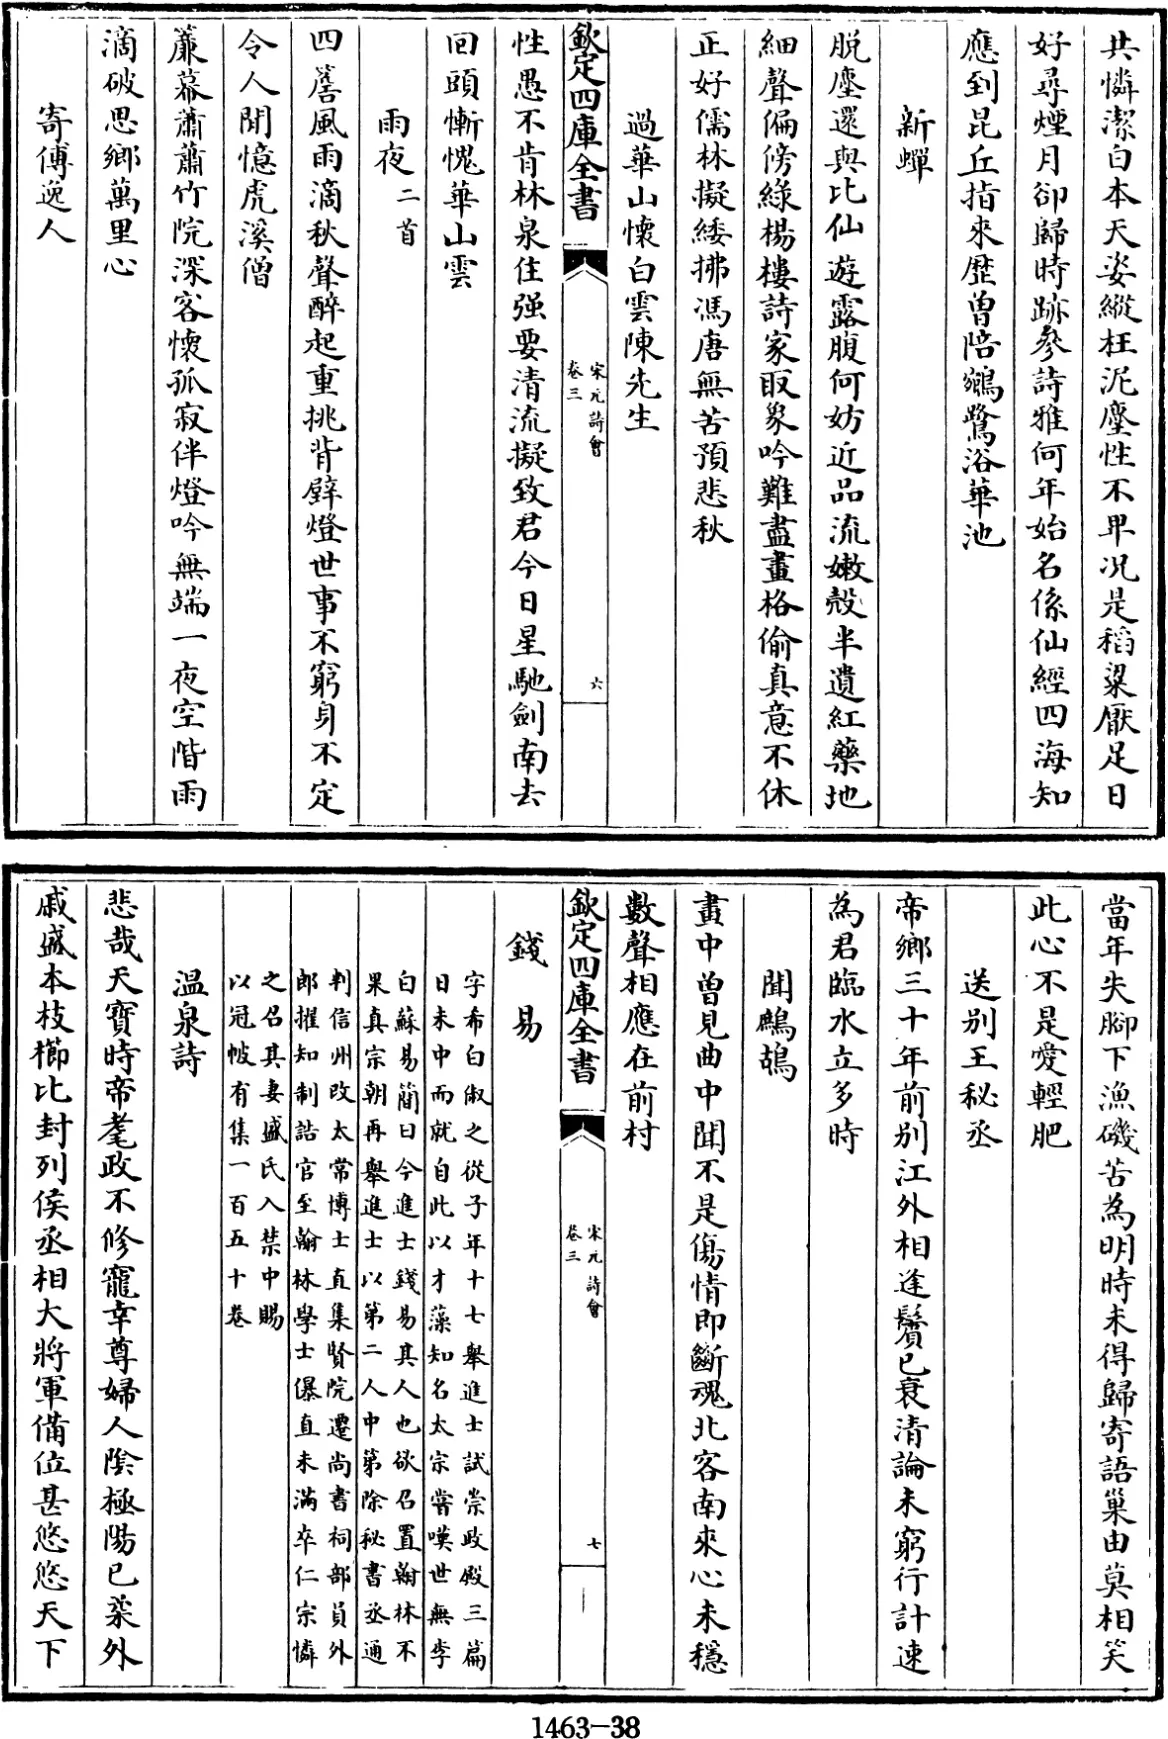 共憐潔白本天姿縱枉泥塵性不卑况是稻粱厭足日
好尋煙月卻歸時跡參詩雅何年始名係仙經四海知
應到昆丘指來歴曾陪鵷鷺浴華池
新蟬
脱塵還與比仙遊露腹何妨近品流嫩殻半遺紅藥地
細聲偏傍緑楊樓詩家取象吟難盡畫格偷真意不休
正好儒林擬緌拂馮唐無苦預悲秋
過華山懷白雲陳先生
欽定四庫全書
宋元詩會
卷三
六
性愚不肯林泉住强要清流擬致君今日星馳劍南去
回頭慚愧華山雲
雨夜二首
四簷風雨滴秋聲醉起重挑背壁燈世事不窮身不定
令人閒憶虎溪僧
簾幕蕭蕭竹院深客懷孤寂伴燈吟無端一夜空階雨
滴破思鄉萬里心
寄傅逸人
當年失腳下漁磯苦為明時未得歸寄語巢由莫相笑
此心不是愛輕肥
送别王秘丞
帝鄉三十年前别江外相逢鬢已衰清論未窮行計速
為君臨水立多時
聞鷓鴣
畫中曾見曲中聞不是傷情即斷魂北客南來心未穩
數聲相應在前村
欽定四庫全書
宋元詩會
卷三
七
錢易
字希白俶之從子年十七舉進士試崇政殿三篇
日未中而就自此以才藻知名太宗嘗嘆世無李
白蘇易簡曰今進士錢易其人也欲召置翰林不
果真宗朝再舉進士以第二人中第除秘書丞通
判信州改太常博士直集賢院遷尚書祠部員外
郎擢知制誥官至翰林學士儤直未滿卒仁宗憐
之召其妻盛氏入禁中賜
以冠帔有集一百五十卷
温泉詩
悲哉天寶時帝耄政不修寵幸尊婦人陰極陽已柔外
戚盛本枝櫛比封列侯丞相大將軍備位甚悠悠天下
1463-38